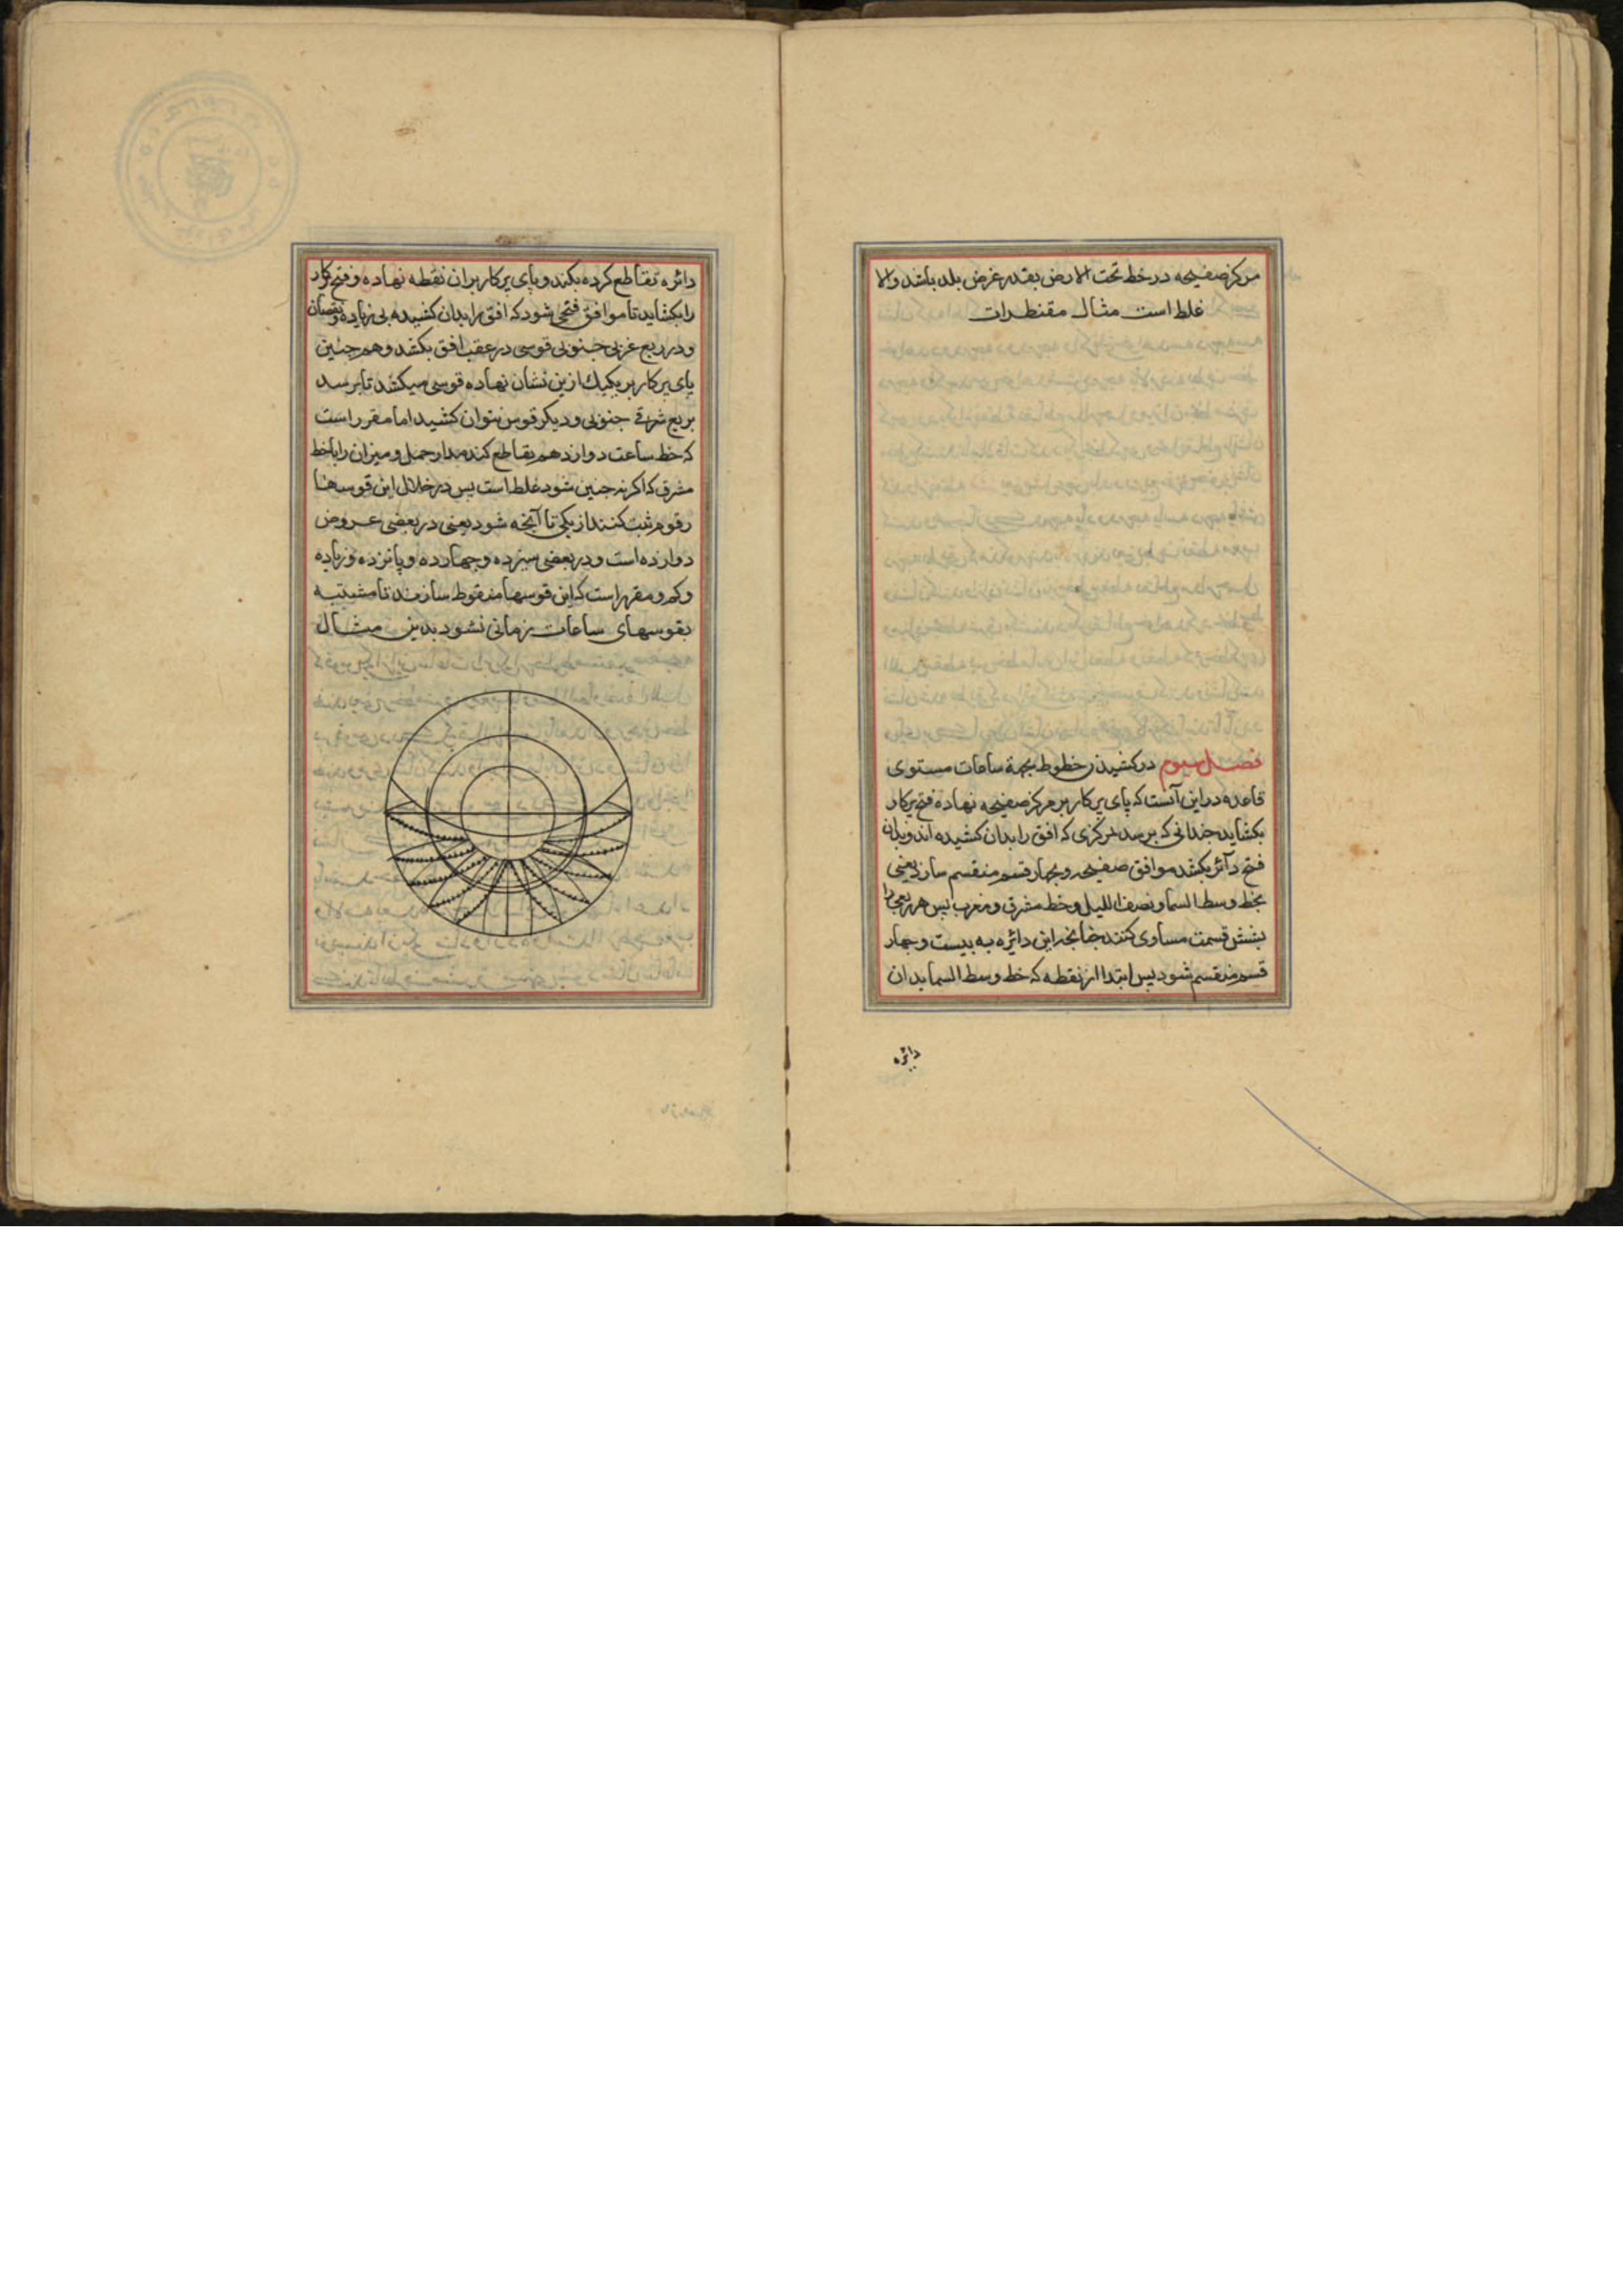 مرکز صفیحه در خط تحت الارض بقدر عرض بلد باشد والا
غلط است مثال مقنطرات
فصل سیوم در کشیدن خطوط بجهة ساعات مستوی
قاعده در این آنست که پای پرکار بر مرکز صفیحه نهاده فتح پرکار
بکشاید چندانی که برسد بمرکزی که افق را بدان کشیده اند و بدان
فتح دائره بکشد موافق صفیحه و بچهار قسم منقسم سازد یعنی
بخط وسط السما و نصف اللیل و خط مشرق و مغرب پس هر ربعی را
بشش قسمت مساوی کنند چنانچه این دائره به بیست و چهار
قسم منقسم شود پس ابتدا از نقطه که خط وسط السما بدان
دائره
دائره تقاطع کرده بکند و پای پرکار بران نقطه نهاده و فتح پرکار
را بکشاید تا موافق فتحی شود که افق را بدان کشیده بی زیاده و نقصان
و در ربع غربی جنوبی قوسی در عقب افق بکشد و هم چنین
پای پرکار بر یکیک ازین نشان نهاده قوسی میکشد تا برسد
بربع شرقی جنوبی و دیکر قوس نتوان کشید اما مقرر است
که خط ساعت دوازدهم تقاطع کند مدار حمل و میزان را با خط
مشرق که اکر نه چنین شود غلط است پس در خلال این قوسها
رقوم ثبت کنند از یکی تا آنچه شود یعنی در بعضی عروض
دوازده است و در بعضی سیزده و چهارده و پانزده و زیاده
و کم و مقرر است که این قوسها منقوط سازند تا مشتبه
بقوسهای ساعات زمانی نشود بدین مثال